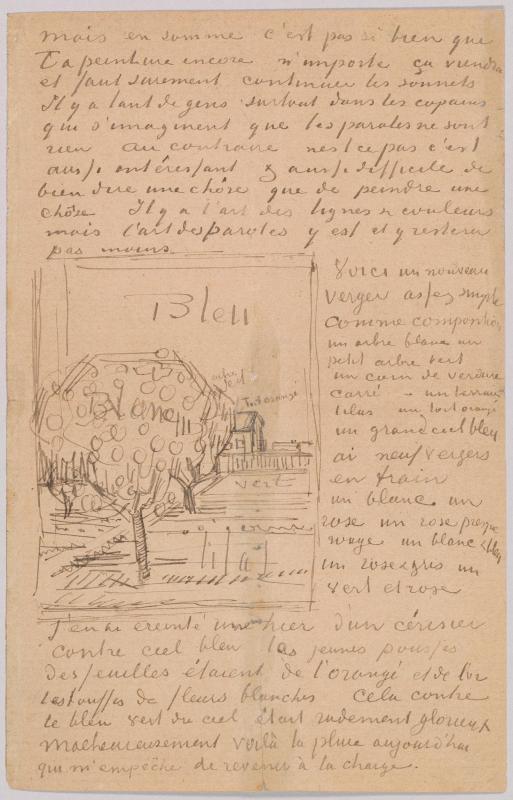 mais en somme c'est pas si bien que
ta peinture encore n'importe ça viendra
et faut surement continuer les sonnets
Il y a tant de gens surtout dans les copains
qui s'imaginent que les paroles ne sont
rien au contraire n'est ce pas c'est
aussi intéressant & aussi difficile de
bien dire une chôse que de peindre une
chôse Il y a l'art des lignes & couleurs
mais l'art des paroles y est et y restera
pas moins
Voici un nouveau
verger assez simple
comme composition
un arbre blanc un
petit arbre vert
un coin de verdure
carré – un terrain
lilas un toit orangé
un grand ciel bleu
ai neuf vergers
en train
un blanc un
rose un rose presque
rouge un blanc & bleu
un rose & gris un
vert et rose
Bleu
arbre
vert
Toit orangé
Blanc
vert
lilas
J'en ai éreinté un hier d'un cérisier
contre ciel bleu les jeunes pousses
des feuilles étaient de l'orangé et de l'or
les touffes de fleurs blanches cela contre
le bleu vert du ciel était rudement glorieux
Malheureusement voilà la pluie aujourd'hui
qui m'empêche de revenir à la charge.